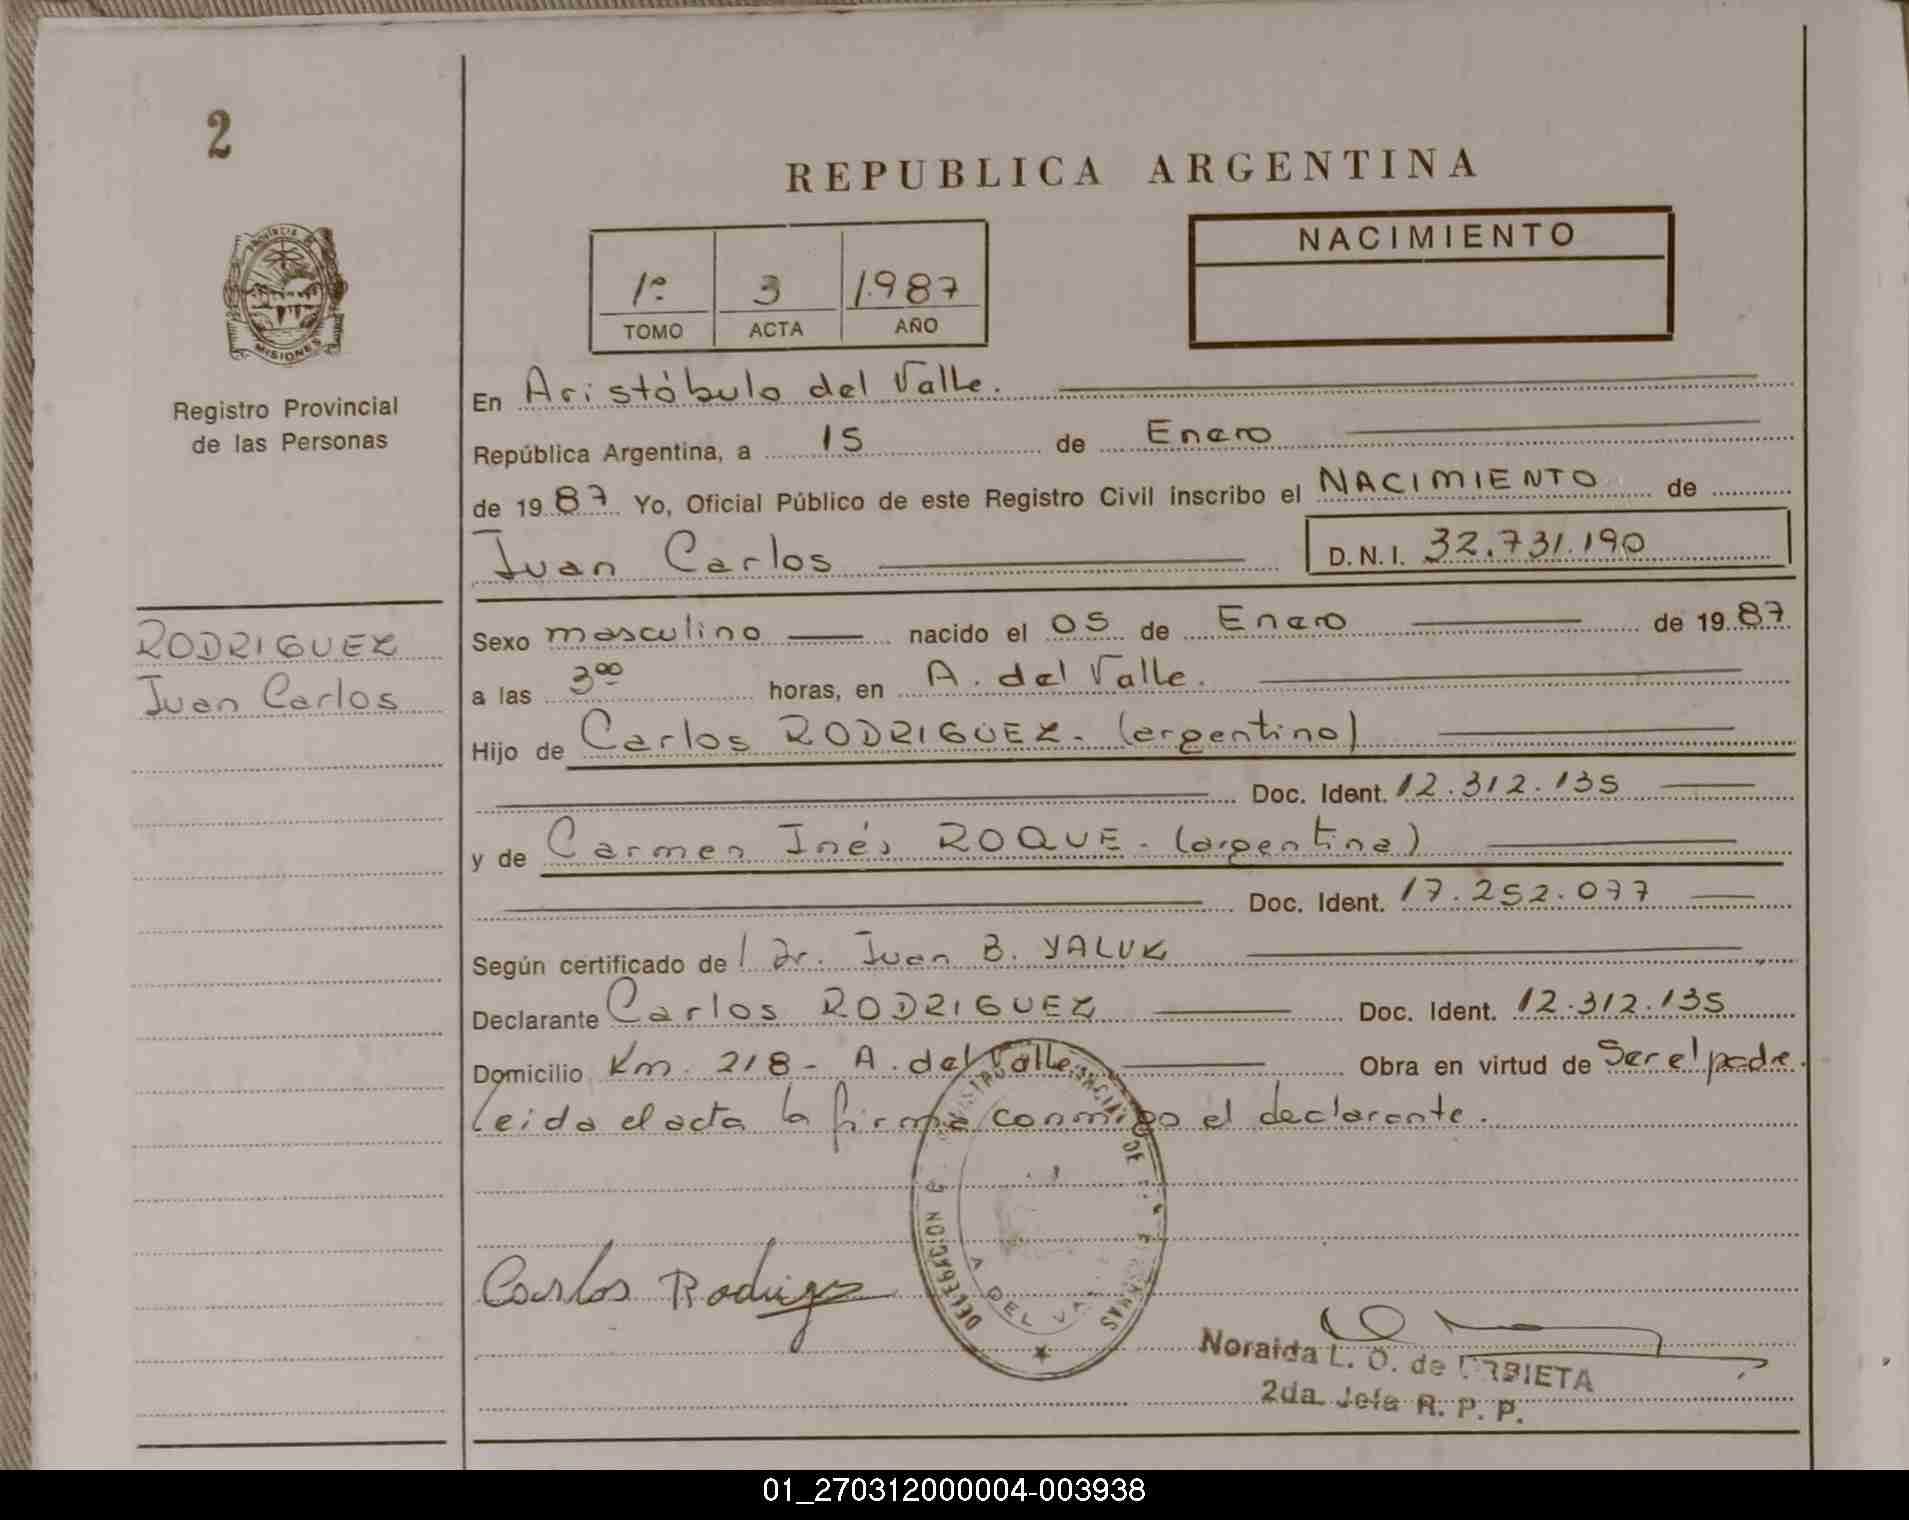 2
REPUBLICA ARGENTINA
PROVINCIA DE
MISIONES
Registro Provincial
de las Personas
1º 3 1.987
TOMO ACTA AÑO
NACIMIENTO
En Aristóbulo del Valle.
República Argentina, a 15 de Enero
de 1987 Yo, Oficial Público de este Registro Civil inscribo el NACIMIENTO de
Juan Carlos D.N.I. 32.731.190
RODRIGUEZ
Juan Carlos
Sexo masculino nacido el 05 de Enero de 1987
a las 3⁰⁰ horas, en A. del Valle.
Hijo de Carlos RODRIGUEZ - (argentino)
Doc. Ident. 12.312.135
y de Carmen Inés ROQUE - (argentina)
Doc. Ident. 17.252.077
Según certificado de l Dr. Juan B. YALUK
Declarante Carlos RODRIGUEZ Doc. Ident. 12.312.135
Domicilio Km. 218 - A. del Valle Obra en virtud de Ser el padre.
Leida el acta la firma conmigo el declarante.
DELEGACION
A DEL
Carlos Rodrigez
Noraida L. O. de
2da. Jefa R. P. P.
01_270312000004-003938